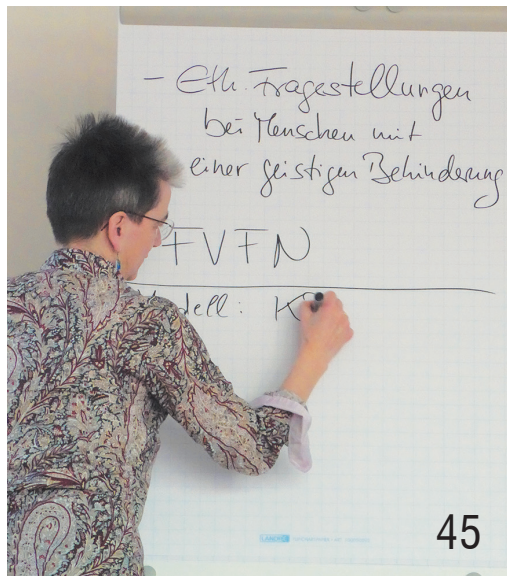 - Eth. Fragestellungen
bei Menschen mit
einer geistigen Behinderung
FVFN
dell: K
LANDRÉ
45